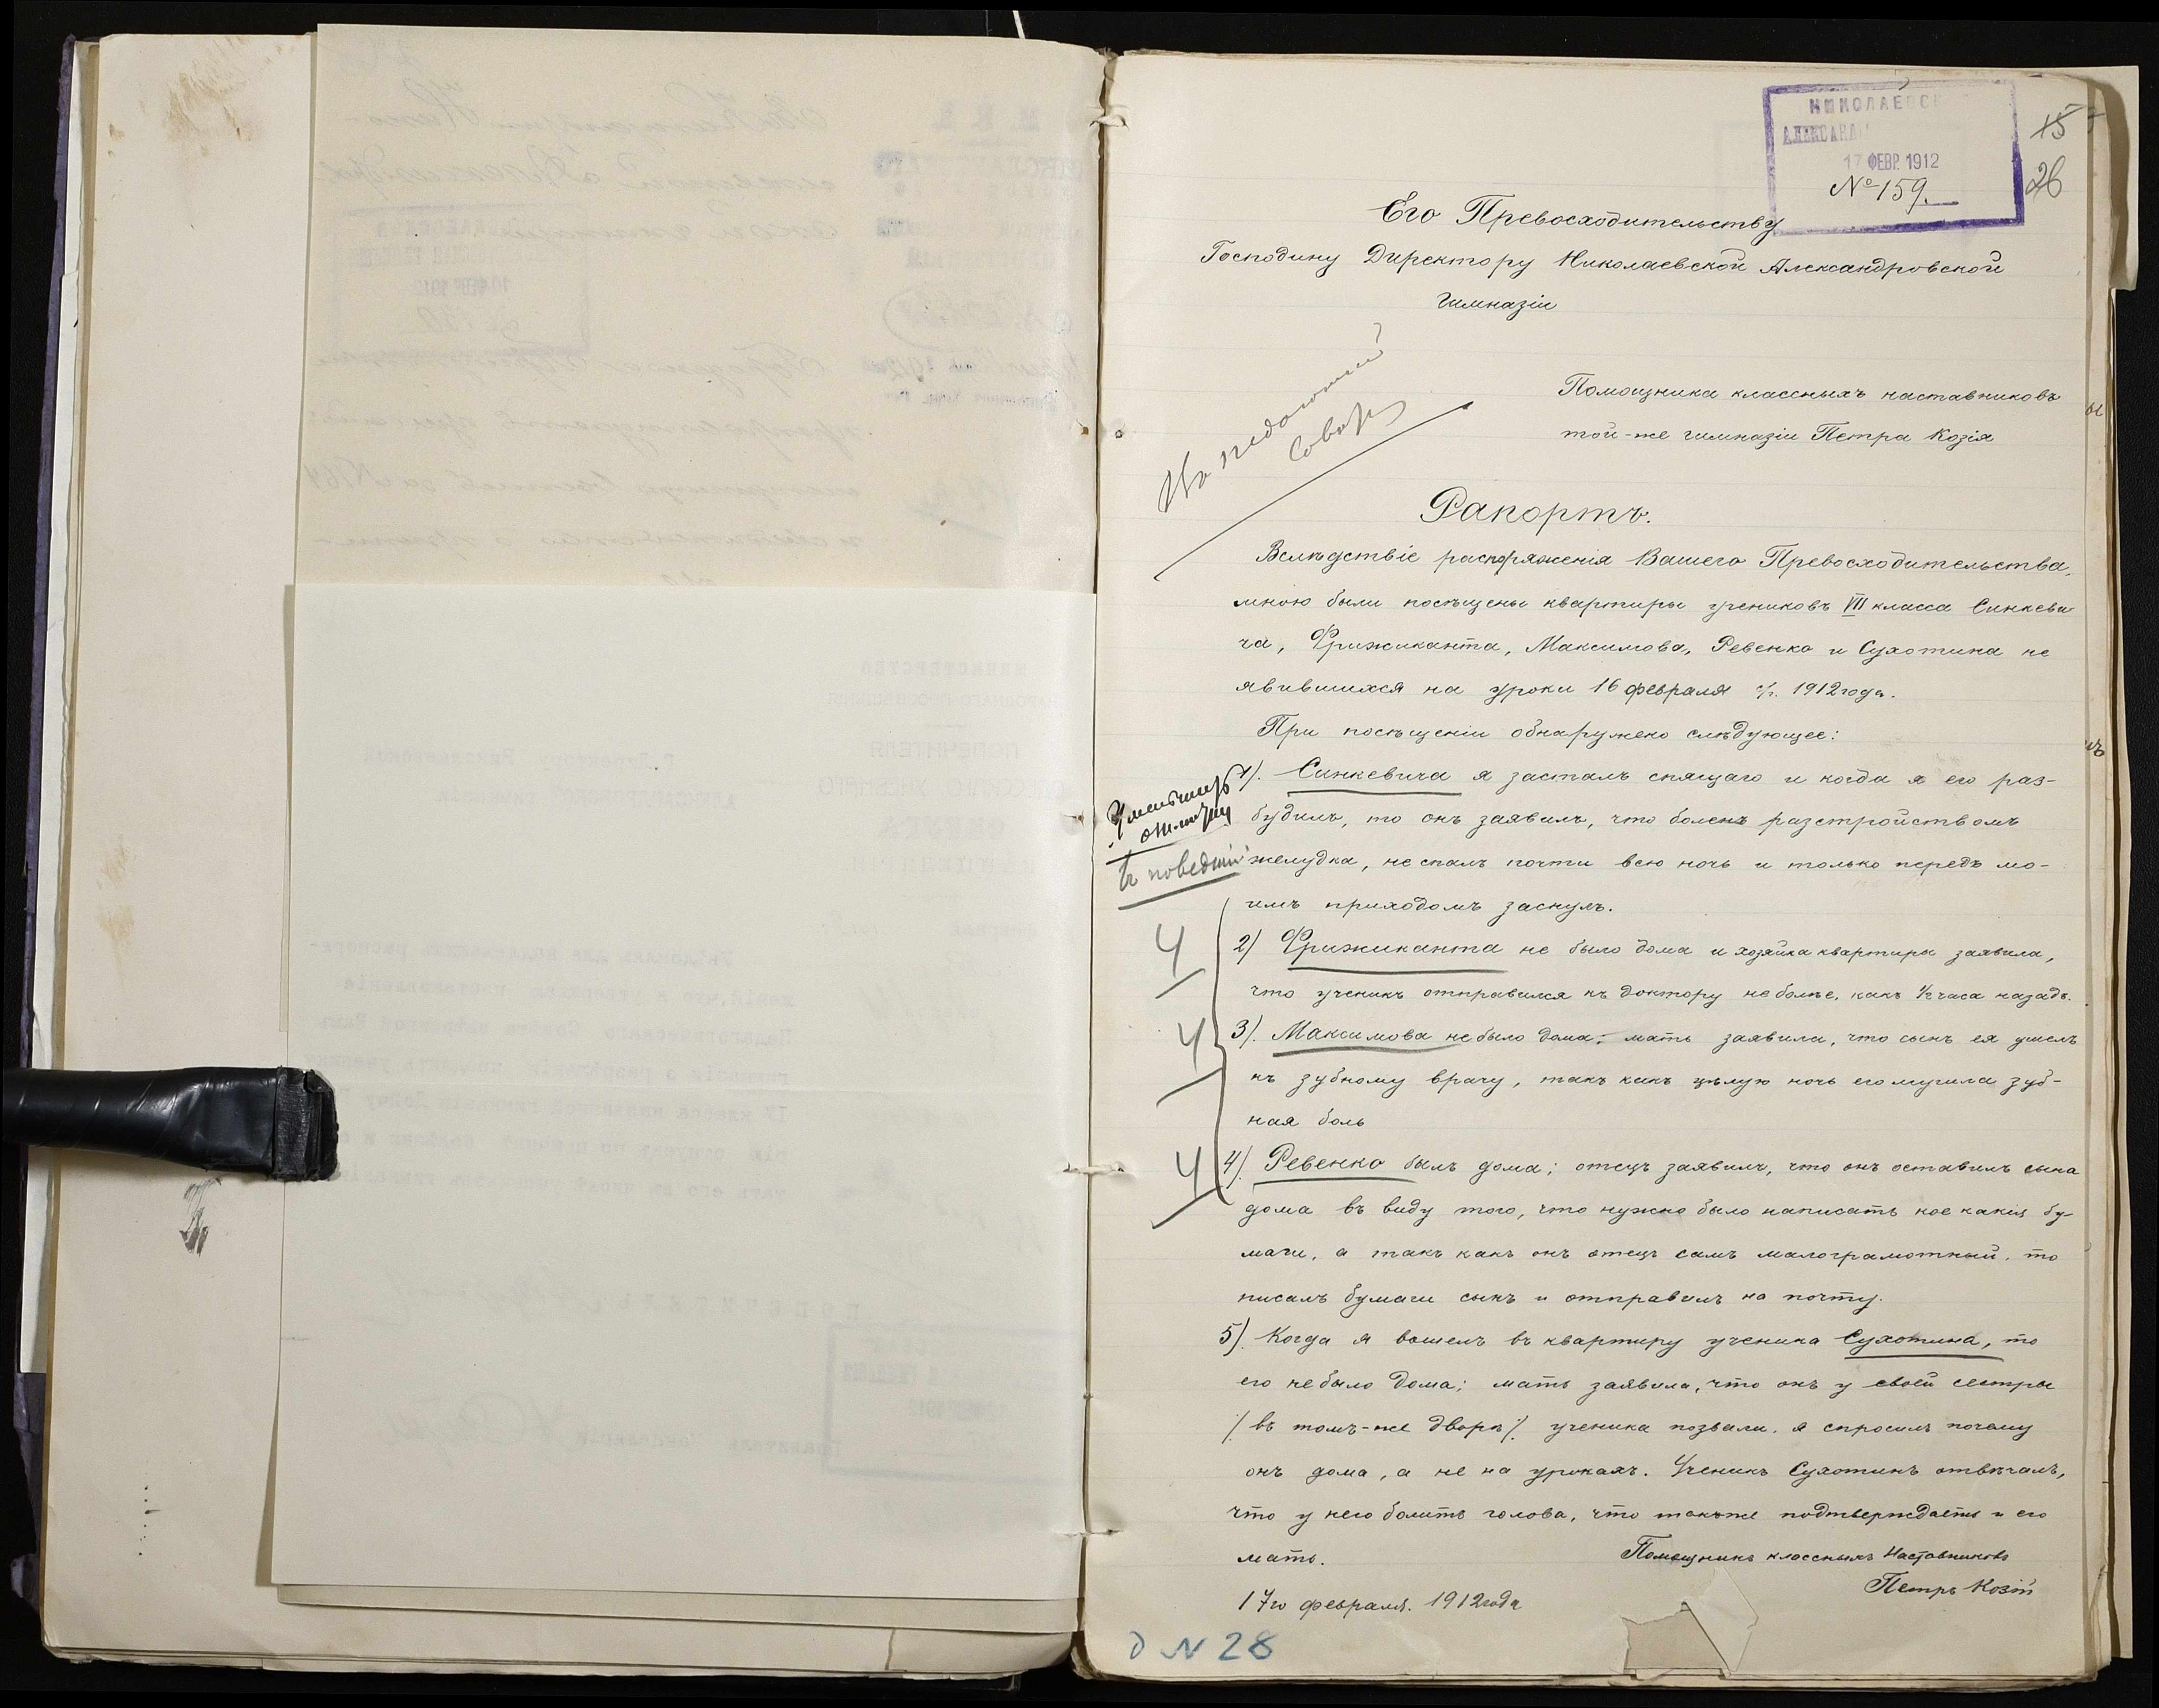 НИКОЛАЕВС
АЛЕКСАНД
17 ФЕВР. 1912
№ 159.
15
26
Его Превосходительству
Господину Директору Николаевской Александровской
Гимназіи
Помощника классныхъ наставниковъ
той-же гимназіи Петра Козія
Рапортъ.
Вслѣдствіе распоряженія Вашего Превосходительства,
мною были посѣщены квартиры учениковъ VII класса Синкеви
ча, Фрижиканта, Максимова, Ревенко и Сухотина не
явившихся на уроки 16 февраля с/г. 1912 года.
При посѣщеніи обнаружено слѣдующее:
1). Синкевича я засталъ спящаго и когда я его раз-
будилъ, то онъ заявилъ, что боленъ разстройствомъ
желудка, не спалъ почти всю ночь и только передъ мо-
имъ приходомъ заснулъ.
2) Фрижиканта не было дома и хозяйка квартиры заявила,
что ученикъ отправился къ доктору не болѣе, какъ ½ часа назадъ.
3). Максимова не было дома; мать заявила, что сынъ ея ушелъ
къ зубному врачу, такъ какъ цѣлую ночь его мучила зуб-
ная боль
4). Ревенко былъ дома; отецъ заявилъ, что онъ оставилъ сына
дома въ виду того, что нужно было написать кое какія бу-
маги, а такъ какъ онъ отецъ самъ малограмотный, то
писалъ бумаги сынъ и отправилъ на почту.
5). Когда я вошелъ въ квартиру ученика Сухотина, то
его не было дома; мать заявила, что онъ у своей сестры
/въ томъ-же дворѣ/. ученика позвали, я спросилъ почему
онъ дома, а не на урокахъ. Ученикъ Сухотинъ отвѣчалъ,
что у него болитъ голова, что также подтверждаетъ и его
мать.
Помощникъ классныхъ Наставниковъ
Петръ Козій
17го февраля. 1912 года
На педагогическій
Совѣтъ
Уменьшить
отмѣтку
въ поведеніи
4
4
4
д N 28